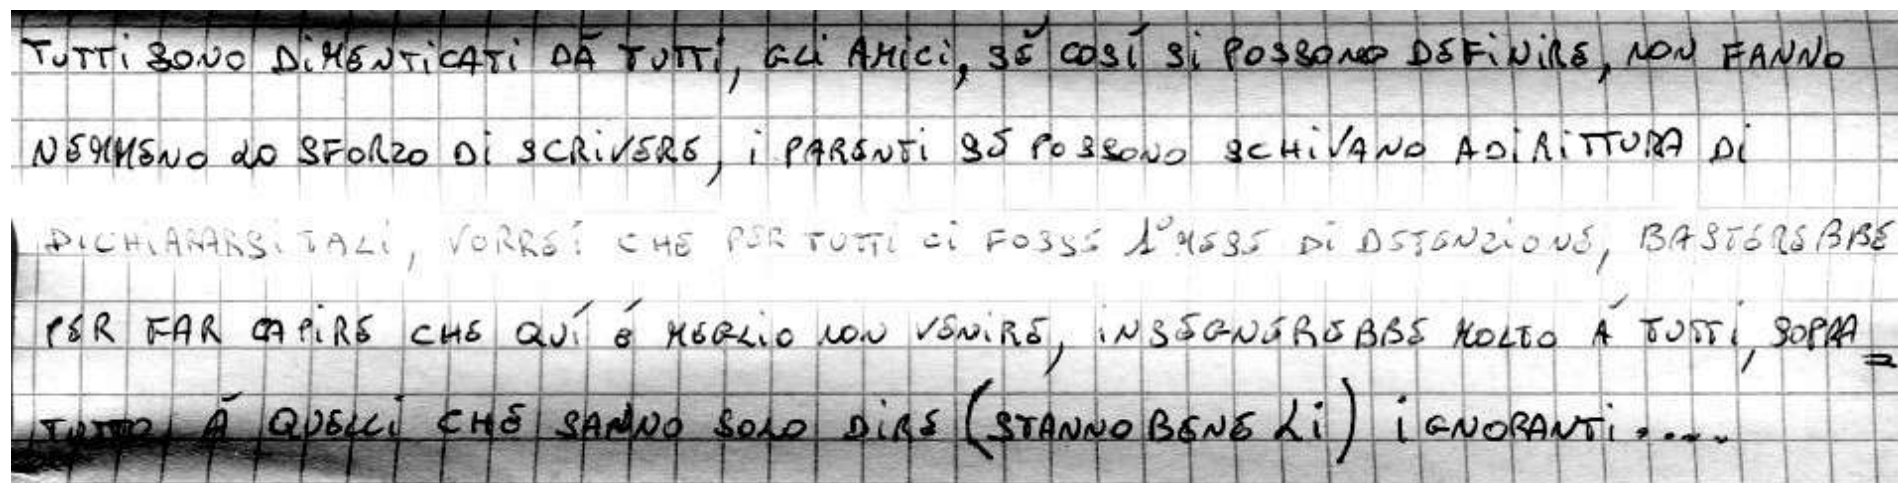 TUTTI SONO DIMENTICATI DÀ TUTTI, GLI AMICI, SÉ COSÍ SI POSSONO DEFINIRE, NON FANNO
NEMMENO LO SFORZO DI SCRIVERE, I PARENTI SÉ POSSONO SCHIVANO ADIRITTURA DI
DICHIARARSI TALI, VORREI CHE PER TUTTI CI FOSSE 1° MESE DI DETENZIONE, BASTEREBBE
PER FAR CAPIRE CHE QUÍ É MEGLIO NON VENIRE, INSEGNEREBBE MOLTO Á TUTTI, SOPRA=
TUTTO, Á QUELLI CHE SANNO SOLO DIRE (STANNO BENE LI) IGNORANTI....